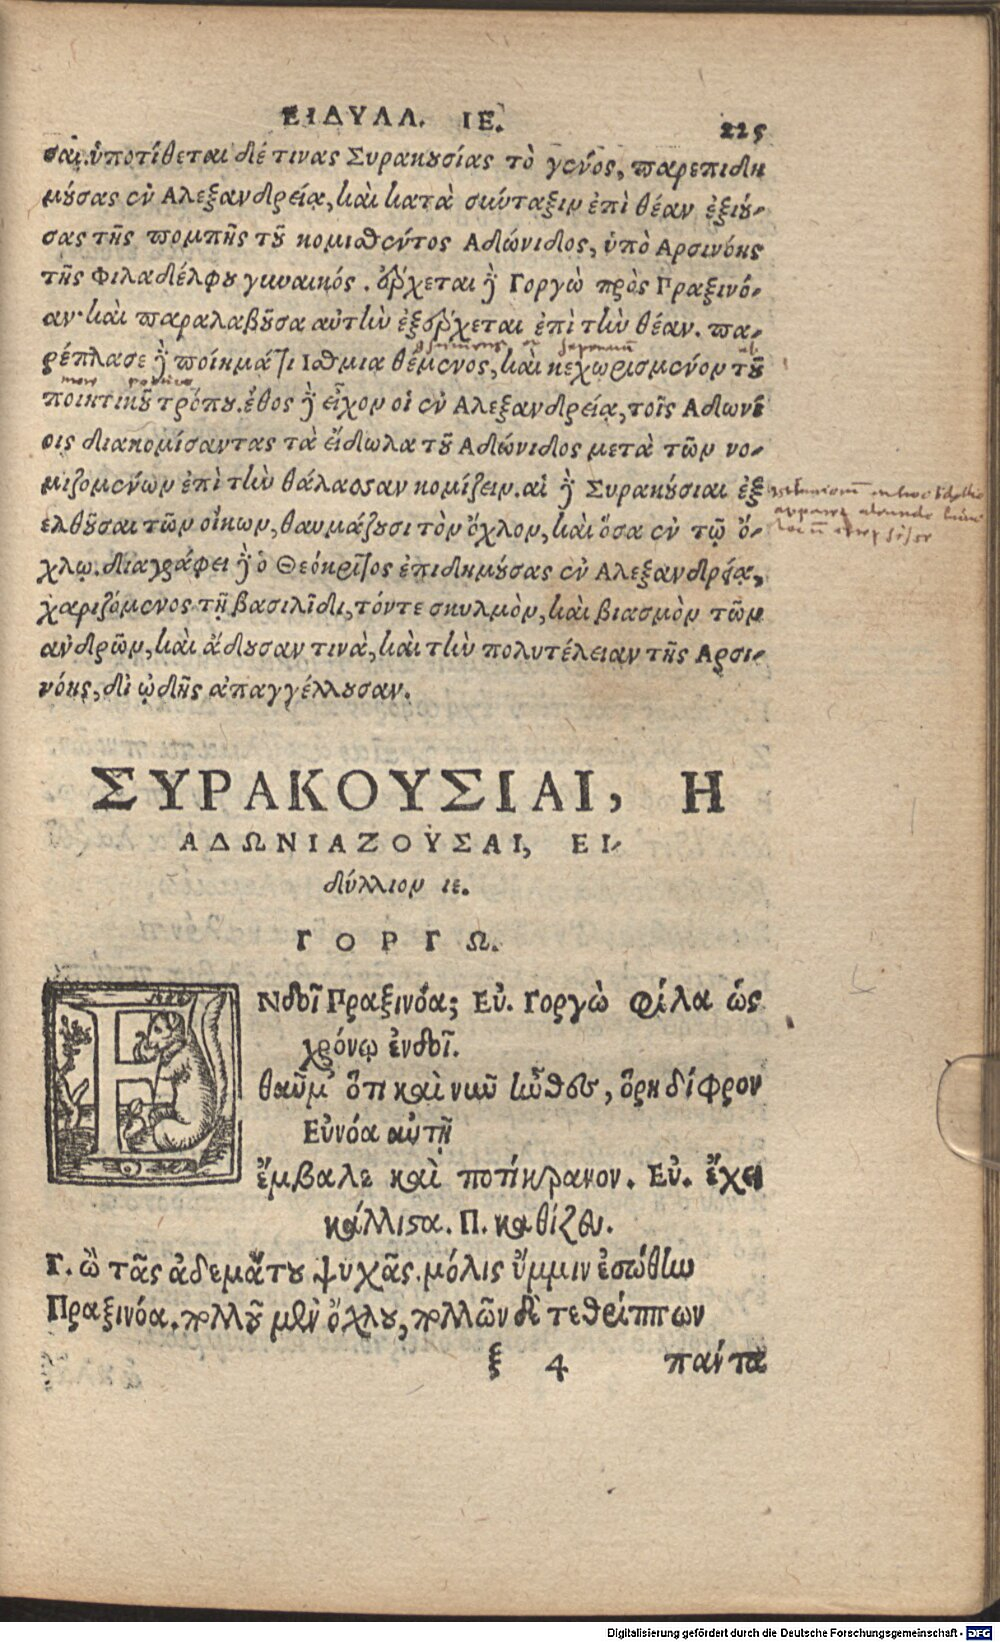 ΕΙΔΥΛΛ. ΙΕ. 225
σαι. ὑποτίθεται δέ τινας Συρακουσίας τὸ γένος, παρεπιδη
μούσας ἐν Αλεξανδρείᾳ, καὶ κατὰ σύνταξιν ἐπὶ θέαν ἐξιού-
σας τῆς πομπῆς τοῦ κομιθέντος Αδώνιδος, ὑπὸ Αρσινόης
τῆς Φιλαδέλφου γυναικός. ἔρχεται δὲ Γοργὼ πρὸς Πραξινό-
αν· καὶ παραλαβοῦσα αὐτὴν ἐξέρχεται ἐπὶ τὴν θέαν. πα-
ρέπλασε δὲ ποίημά τι Ισθμια θέμενος, καὶ κεχωρισμένον τοῦ
ποιητικοῦ τρόπου. ἔθος δὲ εἶχον οἱ ἐν Αλεξανδρείᾳ, τοῖς Αδωνί
οις διακομίσαντας τὰ εἴδωλα τοῦ Αδώνιδος μετὰ τῶν νο-
μιζομένων ἐπὶ τὴν θάλασσαν κομίζειν. αἱ δὲ Συρακούσιαι ἐξ
ελθοῦσαι τῶν οἴκων, θαυμάζουσι τὸν ὄχλον, καὶ ὅσα ἐν τῷ ὄ-
χλῳ. διαγράφει δὲ ὁ Θεόκριτος ἐπιδημούσας ἐν Αλεξανδρείᾳ,
χαριζόμενος τῇ βασιλίδι, τόντε σκυλμὸν, καὶ βιασμὸν τῶν
ανδρῶν, καὶ ᾄδουσαν τινὰ, καὶ τὴν πολυτέλειαν τῆς Αρσι-
νόης, δι ᾠδῆς ἀπαγγέλλουσαν.
ΣΥΡΑΚΟΥΣΙΑΙ, Η
ΑΔΩΝΙΑΖΟΥΣΑΙ, ΕΙ-
δύλλιον ιε.
ΓΟΡΓΩ.
ΕΝδοῖ Πραξινόα; Εὐ. Γοργὼ φίλα ὡς
χρόνῳ ἐνδοῖ.
θαῦμ' ὅτι καὶ νῦν ἦνθες, ὅρη δίφρον
Εὐνόα αὐτῇ
ἔμβαλε καὶ ποτίκρανον. Εὐ. ἔχει
κάλλιστα. Π. καθίζευ.
Γ. ὢ τᾶς ἀδεμάτου ψυχᾶς. μόλις ὔμμιν ἐσώθην
Πραξινόα. πολλοῦ μὲν ὄχλου, πολλῶν δὲ τεθρίππων
ξ 4 παντα
Digitalisierung gefördert durch die Deutsche Forschungsgemeinschaft - DFG